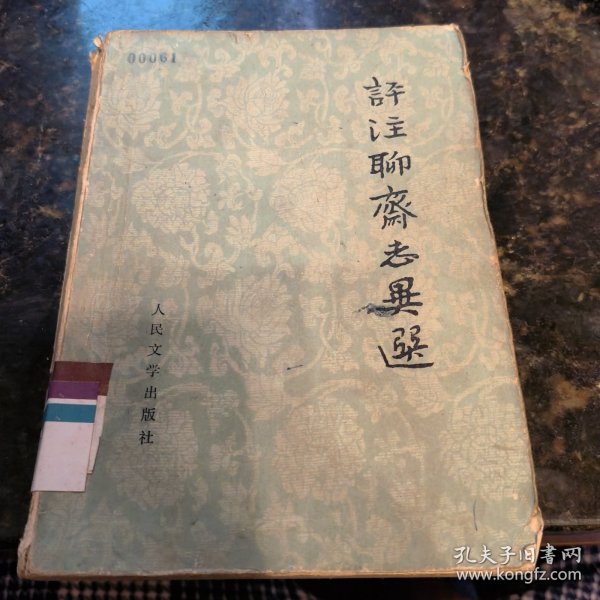 00061
評注聊齋志異選
人民文学出版社
孔夫子旧书网
www.kongfz.com